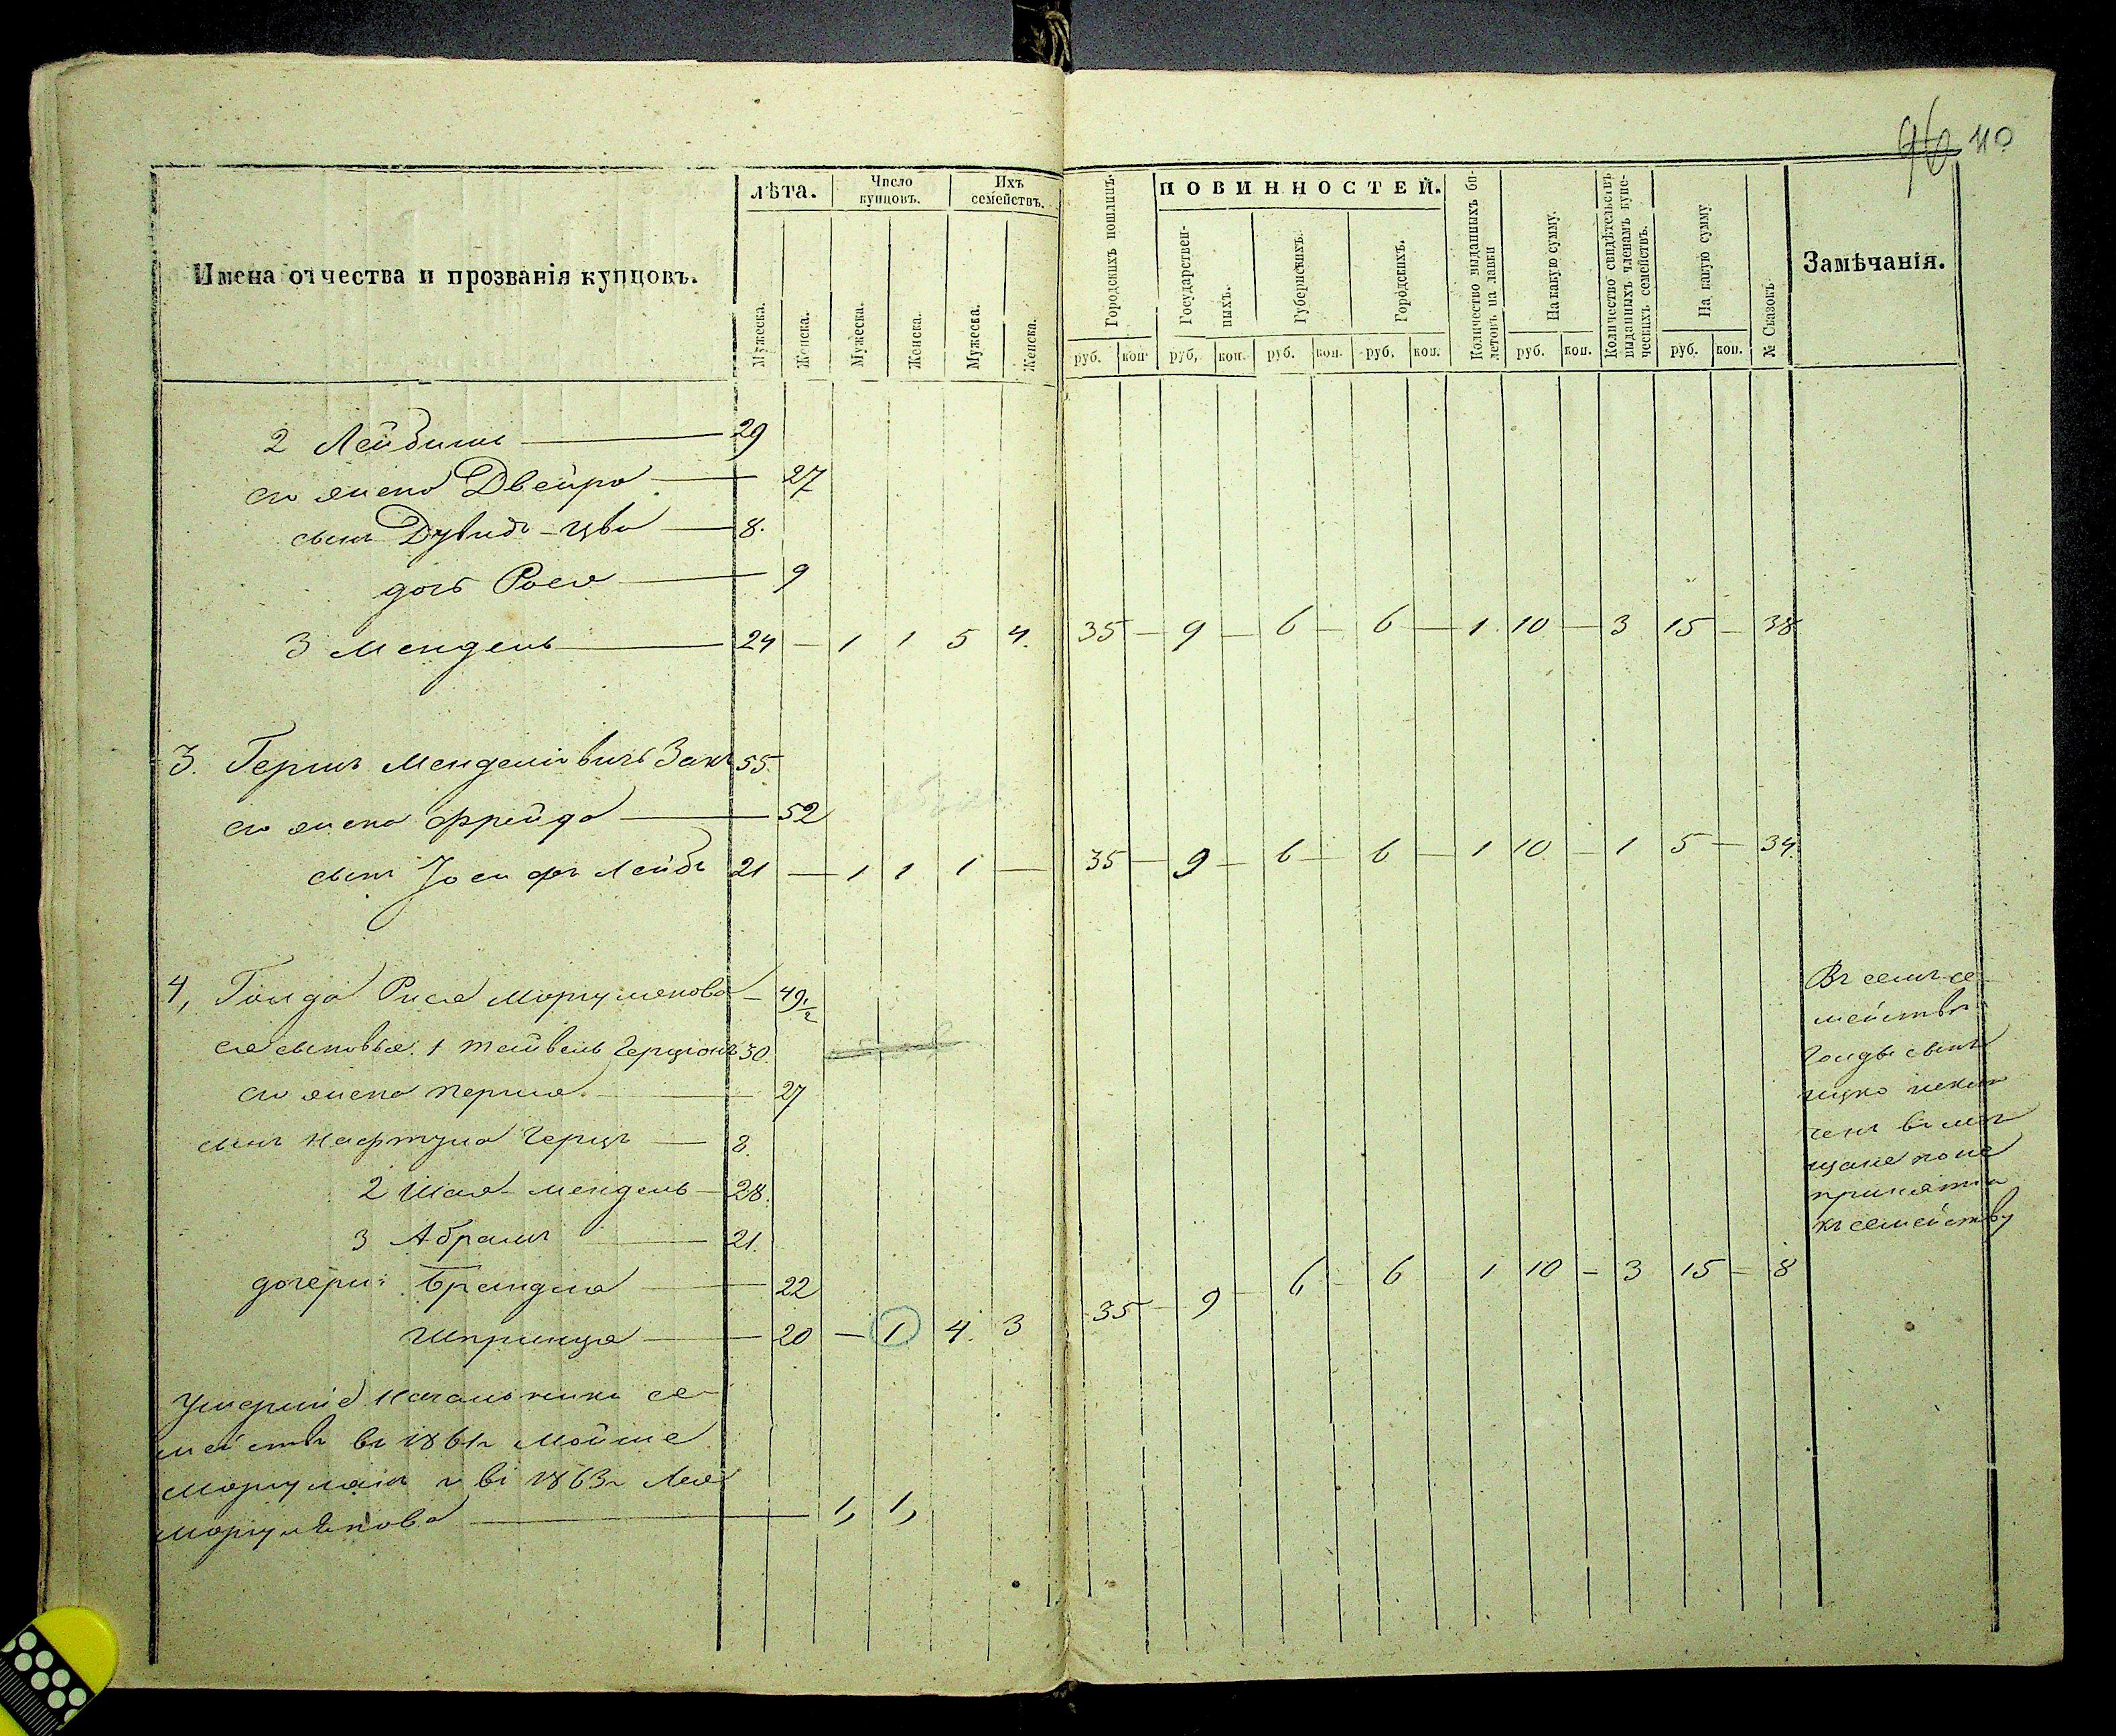 96 110
Имена отчества и прозванія купцовъ.
лѣта.
Число купцовъ.
Ихъ семействъ.
Мужеска.
Женска.
Мужеска.
Женска.
Мужеска.
Женска.
Городскихъ пошлинъ.
ПОВИННОСТЕЙ.
Государственныхъ.
Губернскихъ.
Городскихъ.
Количество выданныхъ билетовъ на лавки
На какую сумму.
Количество свидѣтельствъ выданныхъ членамъ купеческихъ семействъ.
На какую сумму
№ Сказокъ
Замѣчанія.
руб. коп. руб. коп. руб. коп. руб. коп. руб. коп. руб. коп.
2 Лейбишъ — 29
его жена Двейра — 27
сынъ Дувидъ-Цви — 8.
дочь Рося — 9
3 Мендель — 24 — 1 1 5 4. 35 — 9 — 6 — 6 — 1 10 — 3 15 — 38
3. Гершъ Менделіовичъ Закъ 55.
его жена Фрейда — 52
сынъ Іосифъ Лейбъ 21 — 1 1 1 — 35 — 9 — 6 — 6 — 1 10 — 1 5 — 34.
4, Голда Рися Моргулянова — 49 1/2
ея сыновья: 1 Герціонъ 30.
его жена Перля — 27
сынъ Нафтула Герцъ — 8.
2 Шая-Мендель — 28.
3 Абрамъ — 21.
дочери: Брандля — 22
Шпринца — 20 — 1 4. 3 35 — 9 — 6 — 6 — 1 10 — 3 15 — 8
Умершіе начальники се-
мействъ въ 1861г Мойше
Моргулянъ и въ 1863г Лея
Моргулянова — 1, 1,
Въ семъ се-
мействѣ
Голды сынъ
Ицко
въ мѣ-
щане по не
принятію
къ семейству